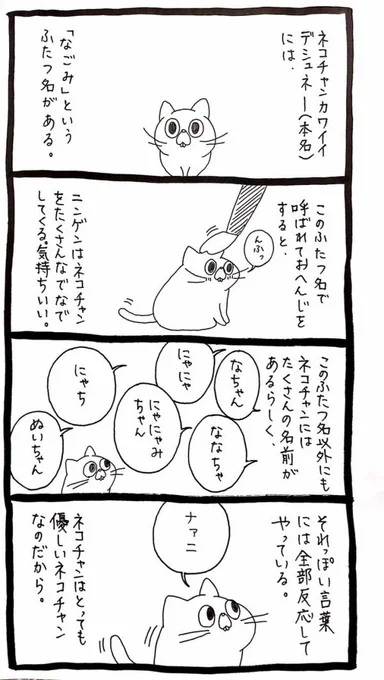 ネコチャンカワイイ
デシュネー(本名)
には、
「なごみ」という
ふたつ名が
ある。
このふたつ名で
呼ばれておへんじを
すると、
んふっ
ニンゲンはネコチャン
をたくさんなでなで
してくる。気持ちいい。
このふたつ名以外にも
ネコチャンには
たくさんの名前が
あるらしく、
なちゃん
にゃにゃ
ななちゃ
にゃにゃみ
ちゃん
にゃち
ぬいちゃん
それっぽい言葉
には全部反応して
やっている。
ナァニ
ネコチャンはとっても
優しいネコチャン
なのだから。